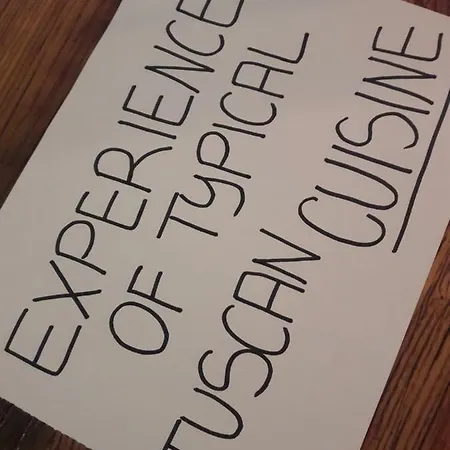 EXPERIENCE
OF TYPICAL
TUSCAN CUISINE